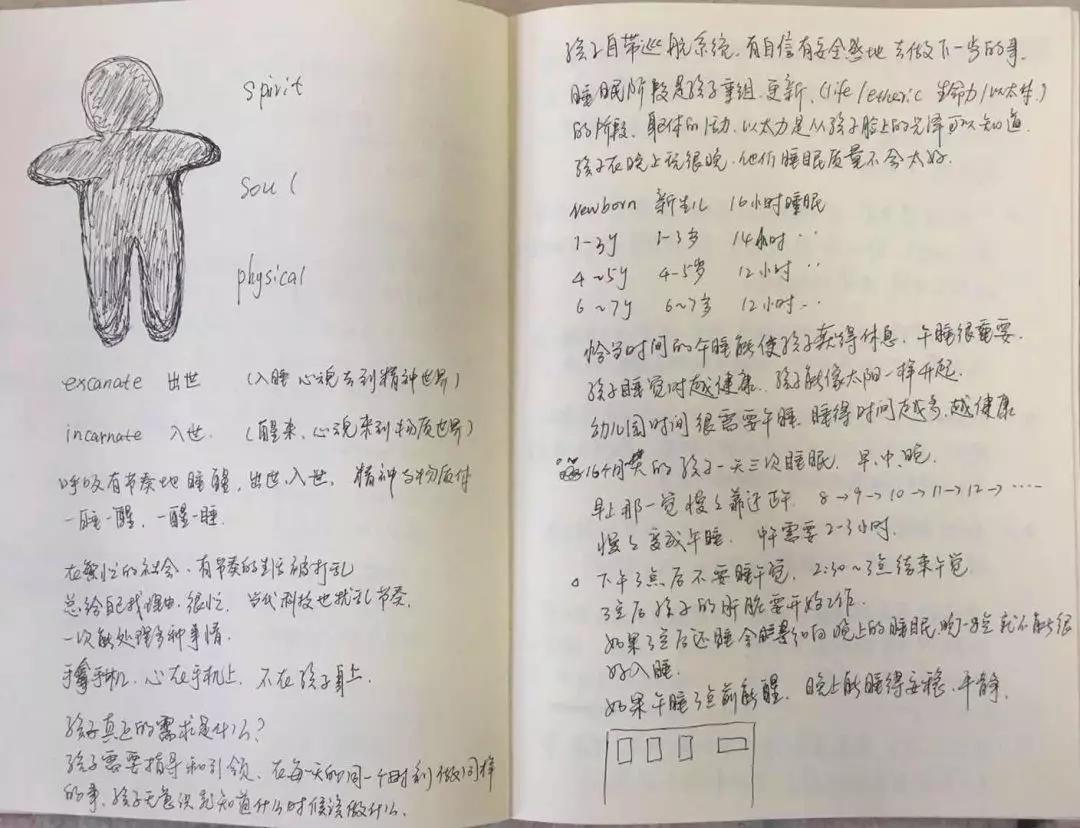 spirit
soul
physical
excanate 出世 (入睡 心魂去到精神世界)
incarnate 入世. (醒来、心魂来到物质世界)
呼吸有节奏地睡醒,出世、入世, 精神与物质体
一睡一醒、一醒一睡.
在繁忙的社会、有节奏的生活被打乱
总给自己找理由、很忙. 当代科技也扰乱节奏.
一次能处理多种事情.
手拿手机、心在手机上、不在孩子身上.
孩子真正的需求是什么?
孩子需要指导和引领、在每一天的同一个时刻做同样
的事、孩子无意识就知道什么时候该做什么.
孩子自带巡航系统、有自信有安全感地去做下一步的事.
睡眠阶段是孩子重组、更新、(life/etheric 生命力/以太体)
的阶段、躯体的活动、以太力是从孩子脸上的光泽可以知道.
孩子在晚上玩很晚、他们睡眠质量不会太好.
Newborn 新生儿 16小时睡眠
1-3y 1-3岁 14小时 ··
4~5y 4-5岁 12小时 ··
6~7y 6~7岁 12小时 ··
恰当时间的午睡能使孩子获得休息、午睡很重要.
孩子睡觉时越健康、孩子能像太阳一样升起.
幼儿园时间很需要午睡、睡得时间越多、越健康
16个月 的孩子一天三次睡眠、早、中、晚.
早上那一觉慢慢靠近中午. 8→9→10→11→12→·····
慢慢变成午睡. 中午需要2-3小时.
○ 下午3点后不要睡午觉, 2:30~3点结束午觉
3点后孩子的肝脏要开始工作.
如果3点后还睡会影响晚上的睡眠、晚7-8点就不能很
好入睡.
如果午睡3点前能醒、晚上能睡得安稳、平静.